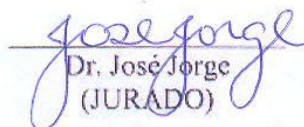 José Jorge
Dr. José Jorge
(JURADO)